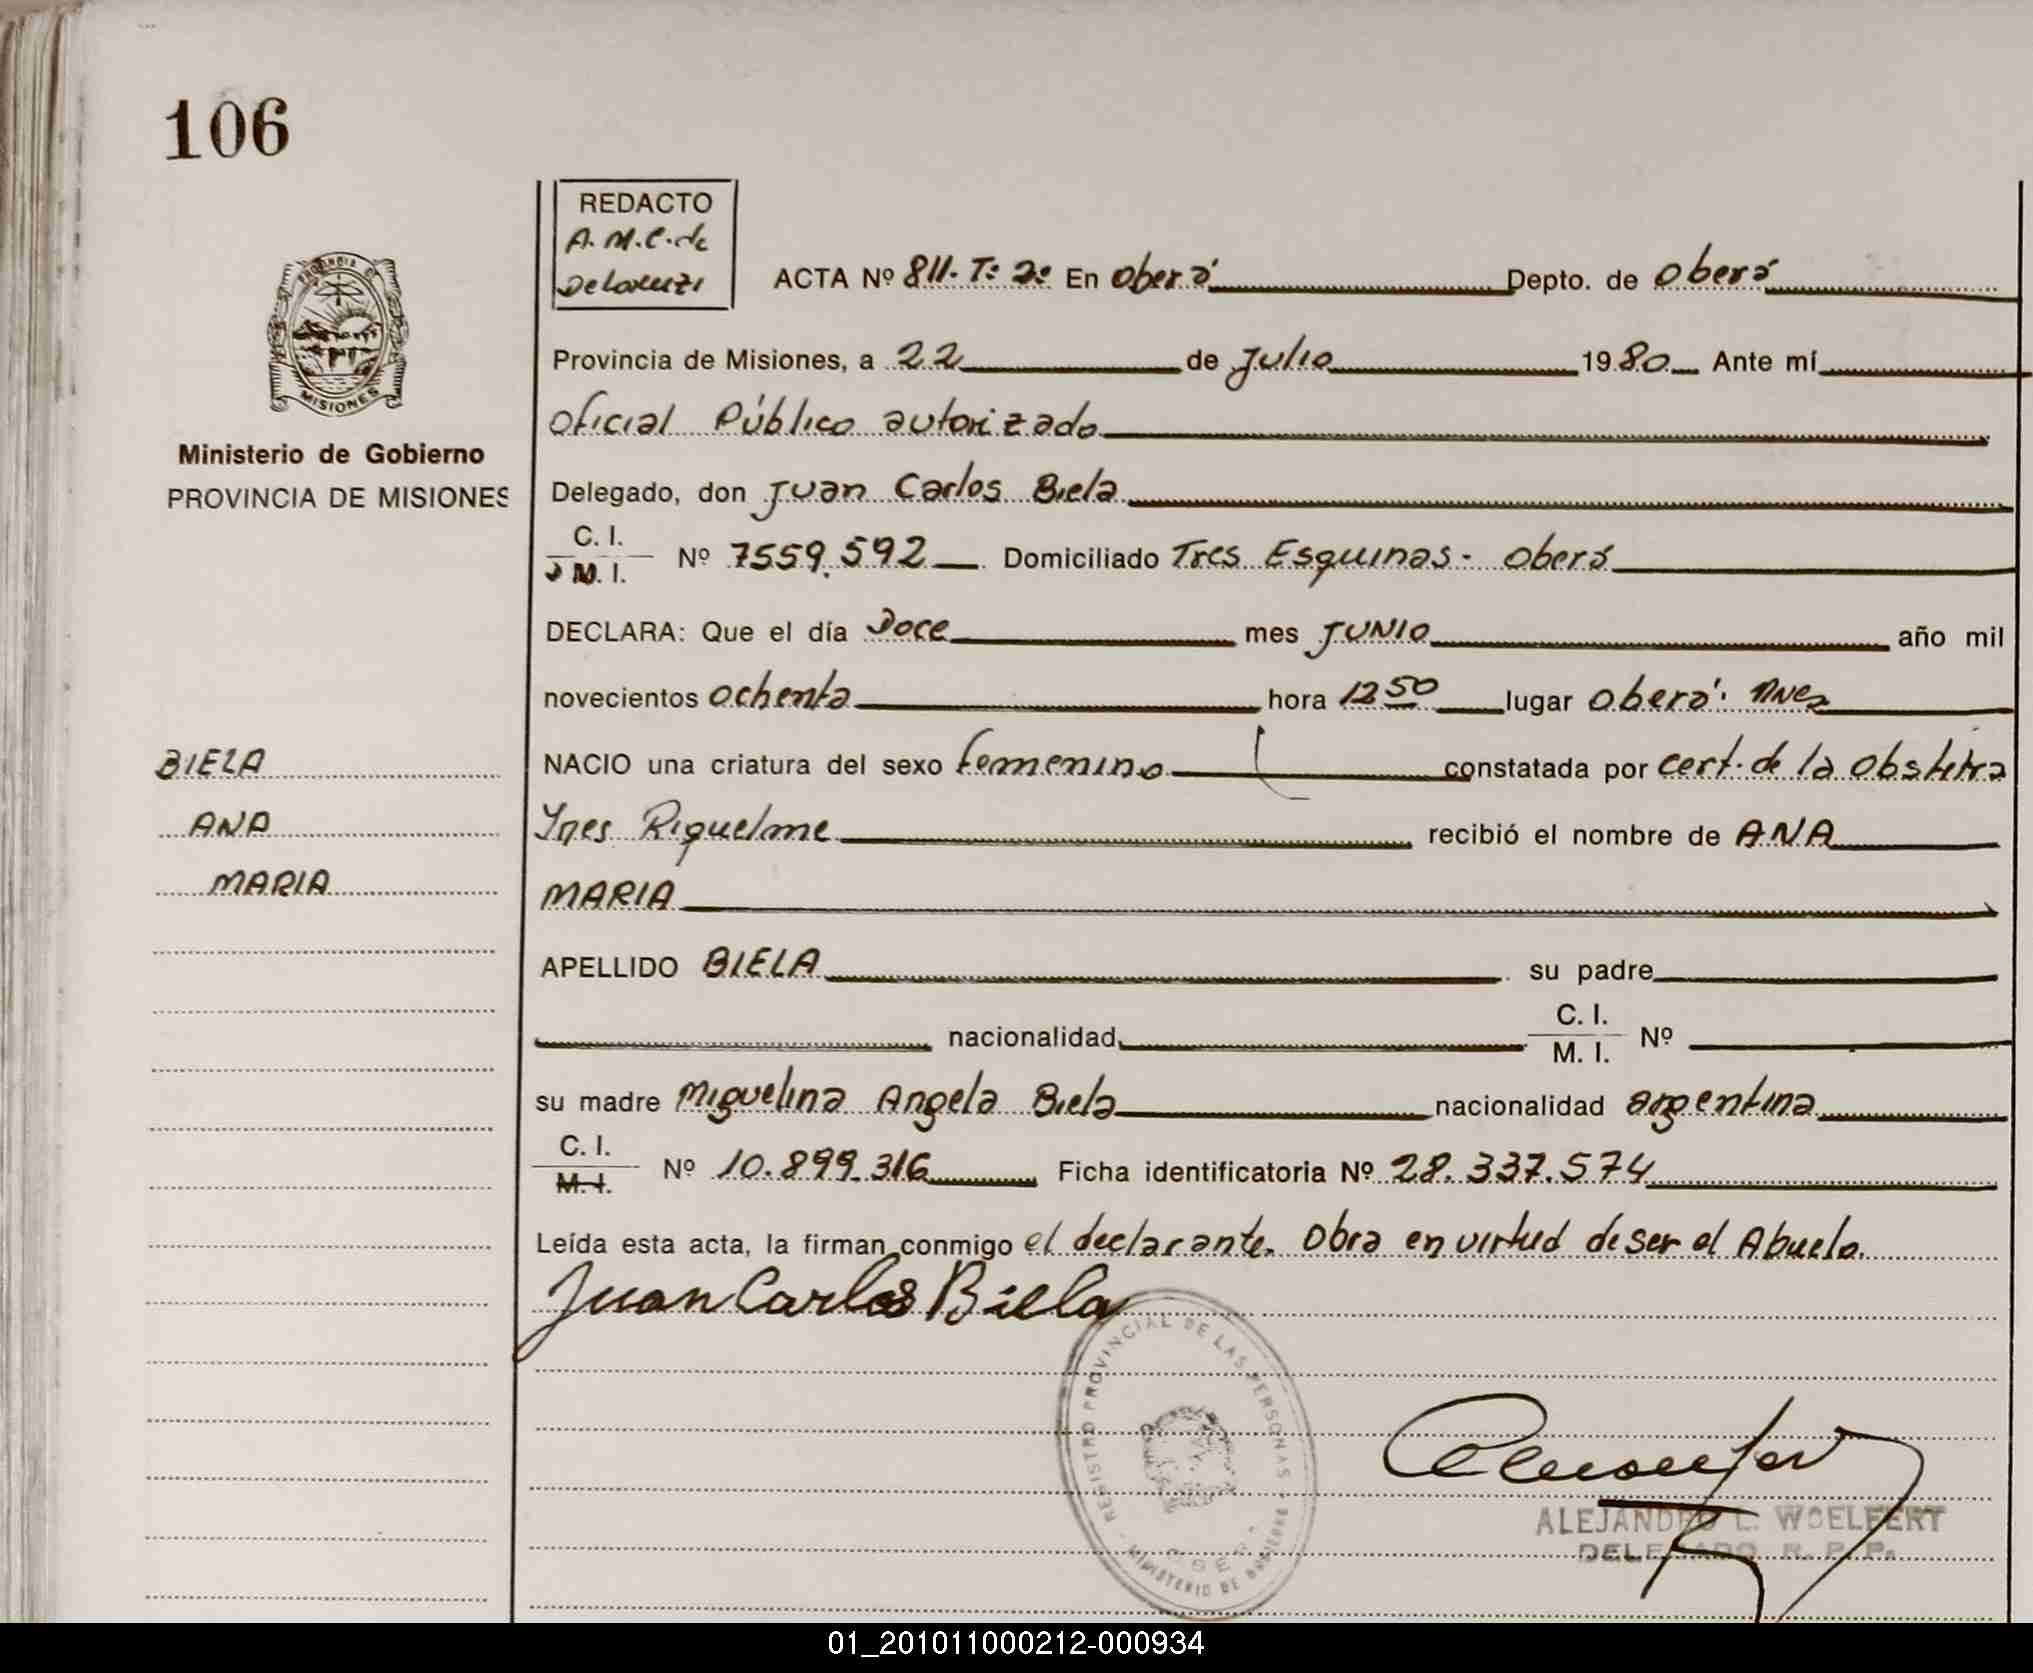 106
REDACTO
A.M.C. de
Delorenzi
ACTA Nº 811. Tº 2º En Oberá Depto. de Oberá
Provincia de Misiones, a 22 de Julio 1980 Ante mí
Oficial Público autorizado
PROVINCIA DE
MISIONES
Ministerio de Gobierno
PROVINCIA DE MISIONES
Delegado, don Juan Carlos Biela
C. I.
M. I. Nº 7559.592 Domiciliado Tres Esquinas - Oberá
DECLARA: Que el día Doce mes JUNIO año mil
novecientos ochenta hora 12 50 lugar Oberá: Mnes
BIELA
ANA
MARIA
NACIO una criatura del sexo femenino constatada por cert. de la obstetra
Ynes Riquelme recibió el nombre de ANA
MARIA
APELLIDO BIELA su padre
nacionalidad C. I.
M. I. Nº
su madre Miguelina Angela Biela nacionalidad argentina
C. I.
M. I. Nº 10.899.316 Ficha identificatoria Nº 28.337.574
Leída esta acta, la firman conmigo el declarante. Obra en virtud de ser el Abuelo.
Juan Carlos Biela
REGISTRO PROVINCIAL DE LAS PERSONAS
MINISTERIO DE GOBIERNO
ALEJANDRO L. WOELFERT
DELEGADO R. P. P.
01_201011000212-000934